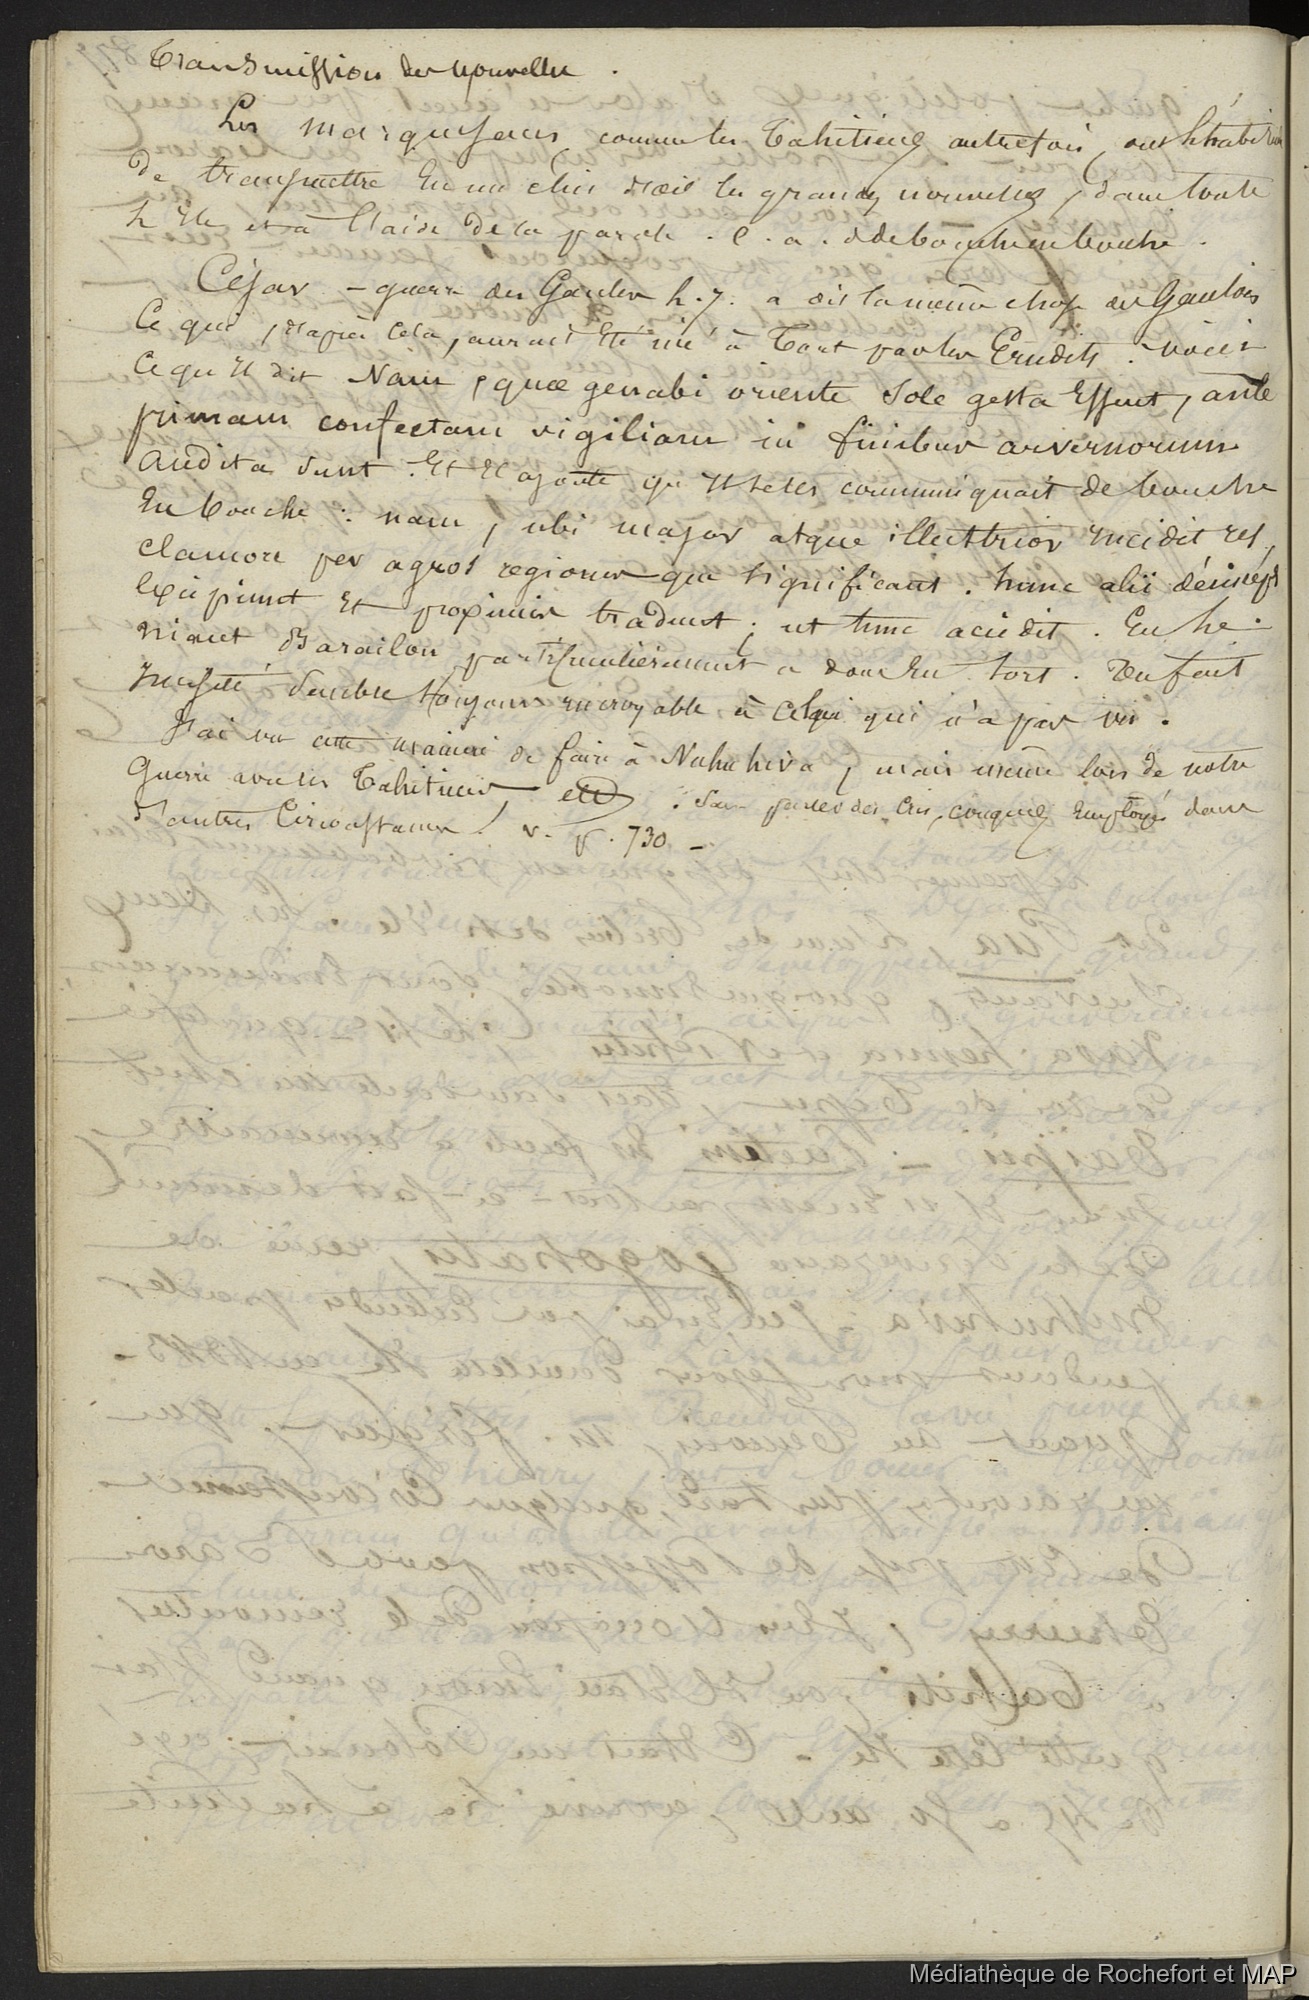 Transmission des nouvelles.
Les marquesans, comme les Tahitiens autrefois, ont l'habitude
de transmettre en un clin d'œil les grandes nouvelles, dans toute
l'île et à l'aide de la parole. c. a. d de bouche en bouche.
César - guerre des Gaules l. 7. a dit la même chose des Gaulois
Ce qui, d'après cela, aurait été nié à Tort par les Erudits. voici
ce qu'il dit Nam, quæ genabi oriente Sole gesta essent, ante
primam confectam vigiliam in finibus arvernorum
audita sunt. Et il ajoute qu'il se les communiquait de bouche
en bouche: nam, ubi major atque illustrior incidit res,
clamore per agros regiones que significant. hunc alii
excipiunt et proximis tradunt; ut tunc accidit. En le
niant Barailon particulièrement a donc eu tort. Un fait
inusité semble toujours incroyable à celui qui n'a pas vu.
J'ai vu cette manière de faire à Nukuhiva, mais même lors de notre
Guerre avec les Tahitiens, etc. Sans parler des cris, conques employés dans
d'autres Circonstances. v. p. 730 -
Médiathèque de Rochefort et MAP